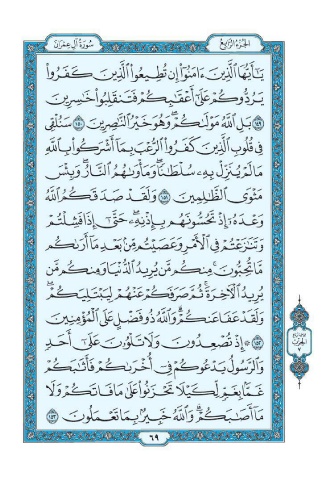 الجزء الرابع
سورة آل عمران
يَٰٓأَيُّهَا ٱلَّذِينَ ءَامَنُوٓا۟ إِن تُطِيعُوا۟ ٱلَّذِينَ كَفَرُوا۟
يَرُدُّوكُمْ عَلَىٰٓ أَعْقَٰبِكُمْ فَتَنقَلِبُوا۟ خَٰسِرِينَ
١٤٩ بَلِ ٱللَّهُ مَوْلَىٰكُمْ ۖ وَهُوَ خَيْرُ ٱلنَّٰصِرِينَ ١٥٠ سَنُلْقِى
فِى قُلُوبِ ٱلَّذِينَ كَفَرُوا۟ ٱلرُّعْبَ بِمَآ أَشْرَكُوا۟ بِٱللَّهِ
مَا لَمْ يُنَزِّلْ بِهِۦ سُلْطَٰنًا ۖ وَمَأْوَىٰهُمُ ٱلنَّارُ ۚ وَبِئْسَ
مَثْوَى ٱلظَّٰلِمِينَ ١٥١ وَلَقَدْ صَدَقَكُمُ ٱللَّهُ
وَعْدَهُۥٓ إِذْ تَحُسُّونَهُم بِإِذْنِهِۦ ۖ حَتَّىٰٓ إِذَا فَشِلْتُمْ
وَتَنَٰزَعْتُمْ فِى ٱلْأَمْرِ وَعَصَيْتُم مِّنۢ بَعْدِ مَآ أَرَىٰكُم
مَّا تُحِبُّونَ ۚ مِنكُم مَّن يُرِيدُ ٱلدُّنْيَا وَمِنكُم مَّن
يُرِيدُ ٱلْءَاخِرَةَ ۚ ثُمَّ صَرَفَكُمْ عَنْهُمْ لِيَبْتَلِيَكُمْ ۖ
وَلَقَدْ عَفَا عَنكُمْ ۗ وَٱللَّهُ ذُو فَضْلٍ عَلَى ٱلْمُؤْمِنِينَ
١٥٢ ۞ إِذْ تُصْعِدُونَ وَلَا تَلْوُۥنَ عَلَىٰٓ أَحَدٍ
وَٱلرَّسُولُ يَدْعُوكُمْ فِىٓ أُخْرَىٰكُمْ فَأَثَٰبَكُمْ
غَمًّۢا بِغَمٍّ لِّكَيْلَا تَحْزَنُوا۟ عَلَىٰ مَا فَاتَكُمْ وَلَا
مَآ أَصَٰبَكُمْ ۗ وَٱللَّهُ خَبِيرٌۢ بِمَا تَعْمَلُونَ ١٥٣
الحزب
٧
٦٩